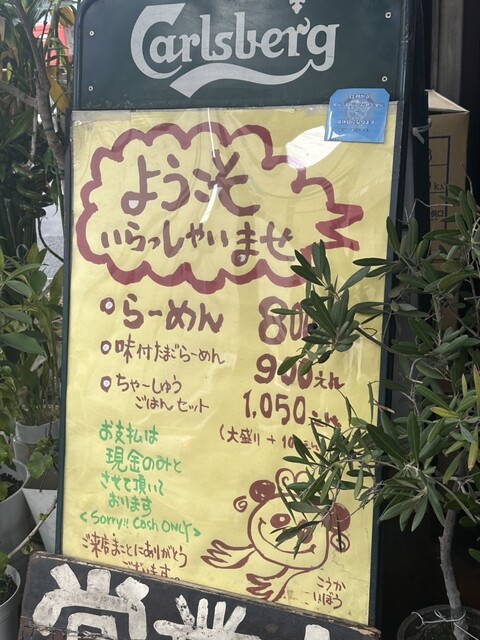 Carlsberg
ようこそ
いらっしゃいませ
らーめん 80
味付たまごらーめん 900えん
ちゃーしゅう
ごはんセット 1,050えん
(大盛り + 10
お支払は
現金のみと
させて頂いて
おります
<Sorry!! Cash ONLY>
ご来店まことにありがとう
ございます。
こうか
いぼう
営業